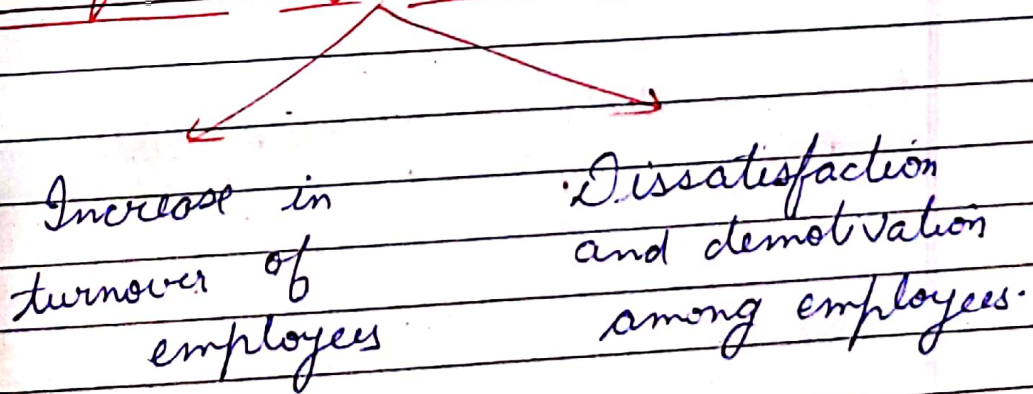 Increase in
turnover of
employees
Dissatisfaction
and demotivation
among employees.